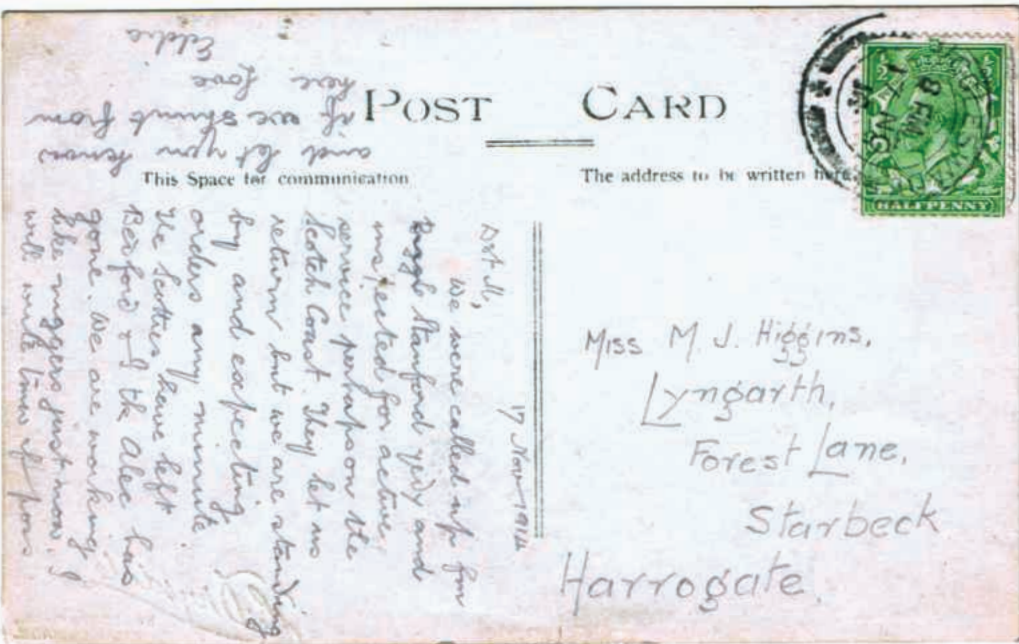 POST CARD
This Space for communication
The address to be written here
HALFPENNY
8 PM
17 Nov 1914
We were called up from
Stanford ydy and
inspected for active
service perhaps on the
Scotch Coast. They let us
return but we are standing
by and expecting
orders any minute.
The Scotties have left
Bedford & I thk Alec has
gone. We are working
like niggers just now. I
will write times if poss
and let you know
if we shunt from
here love
Eddie
Miss M. J. Higgins,
Lyngarth,
Forest Lane,
Starbeck
Harrogate.